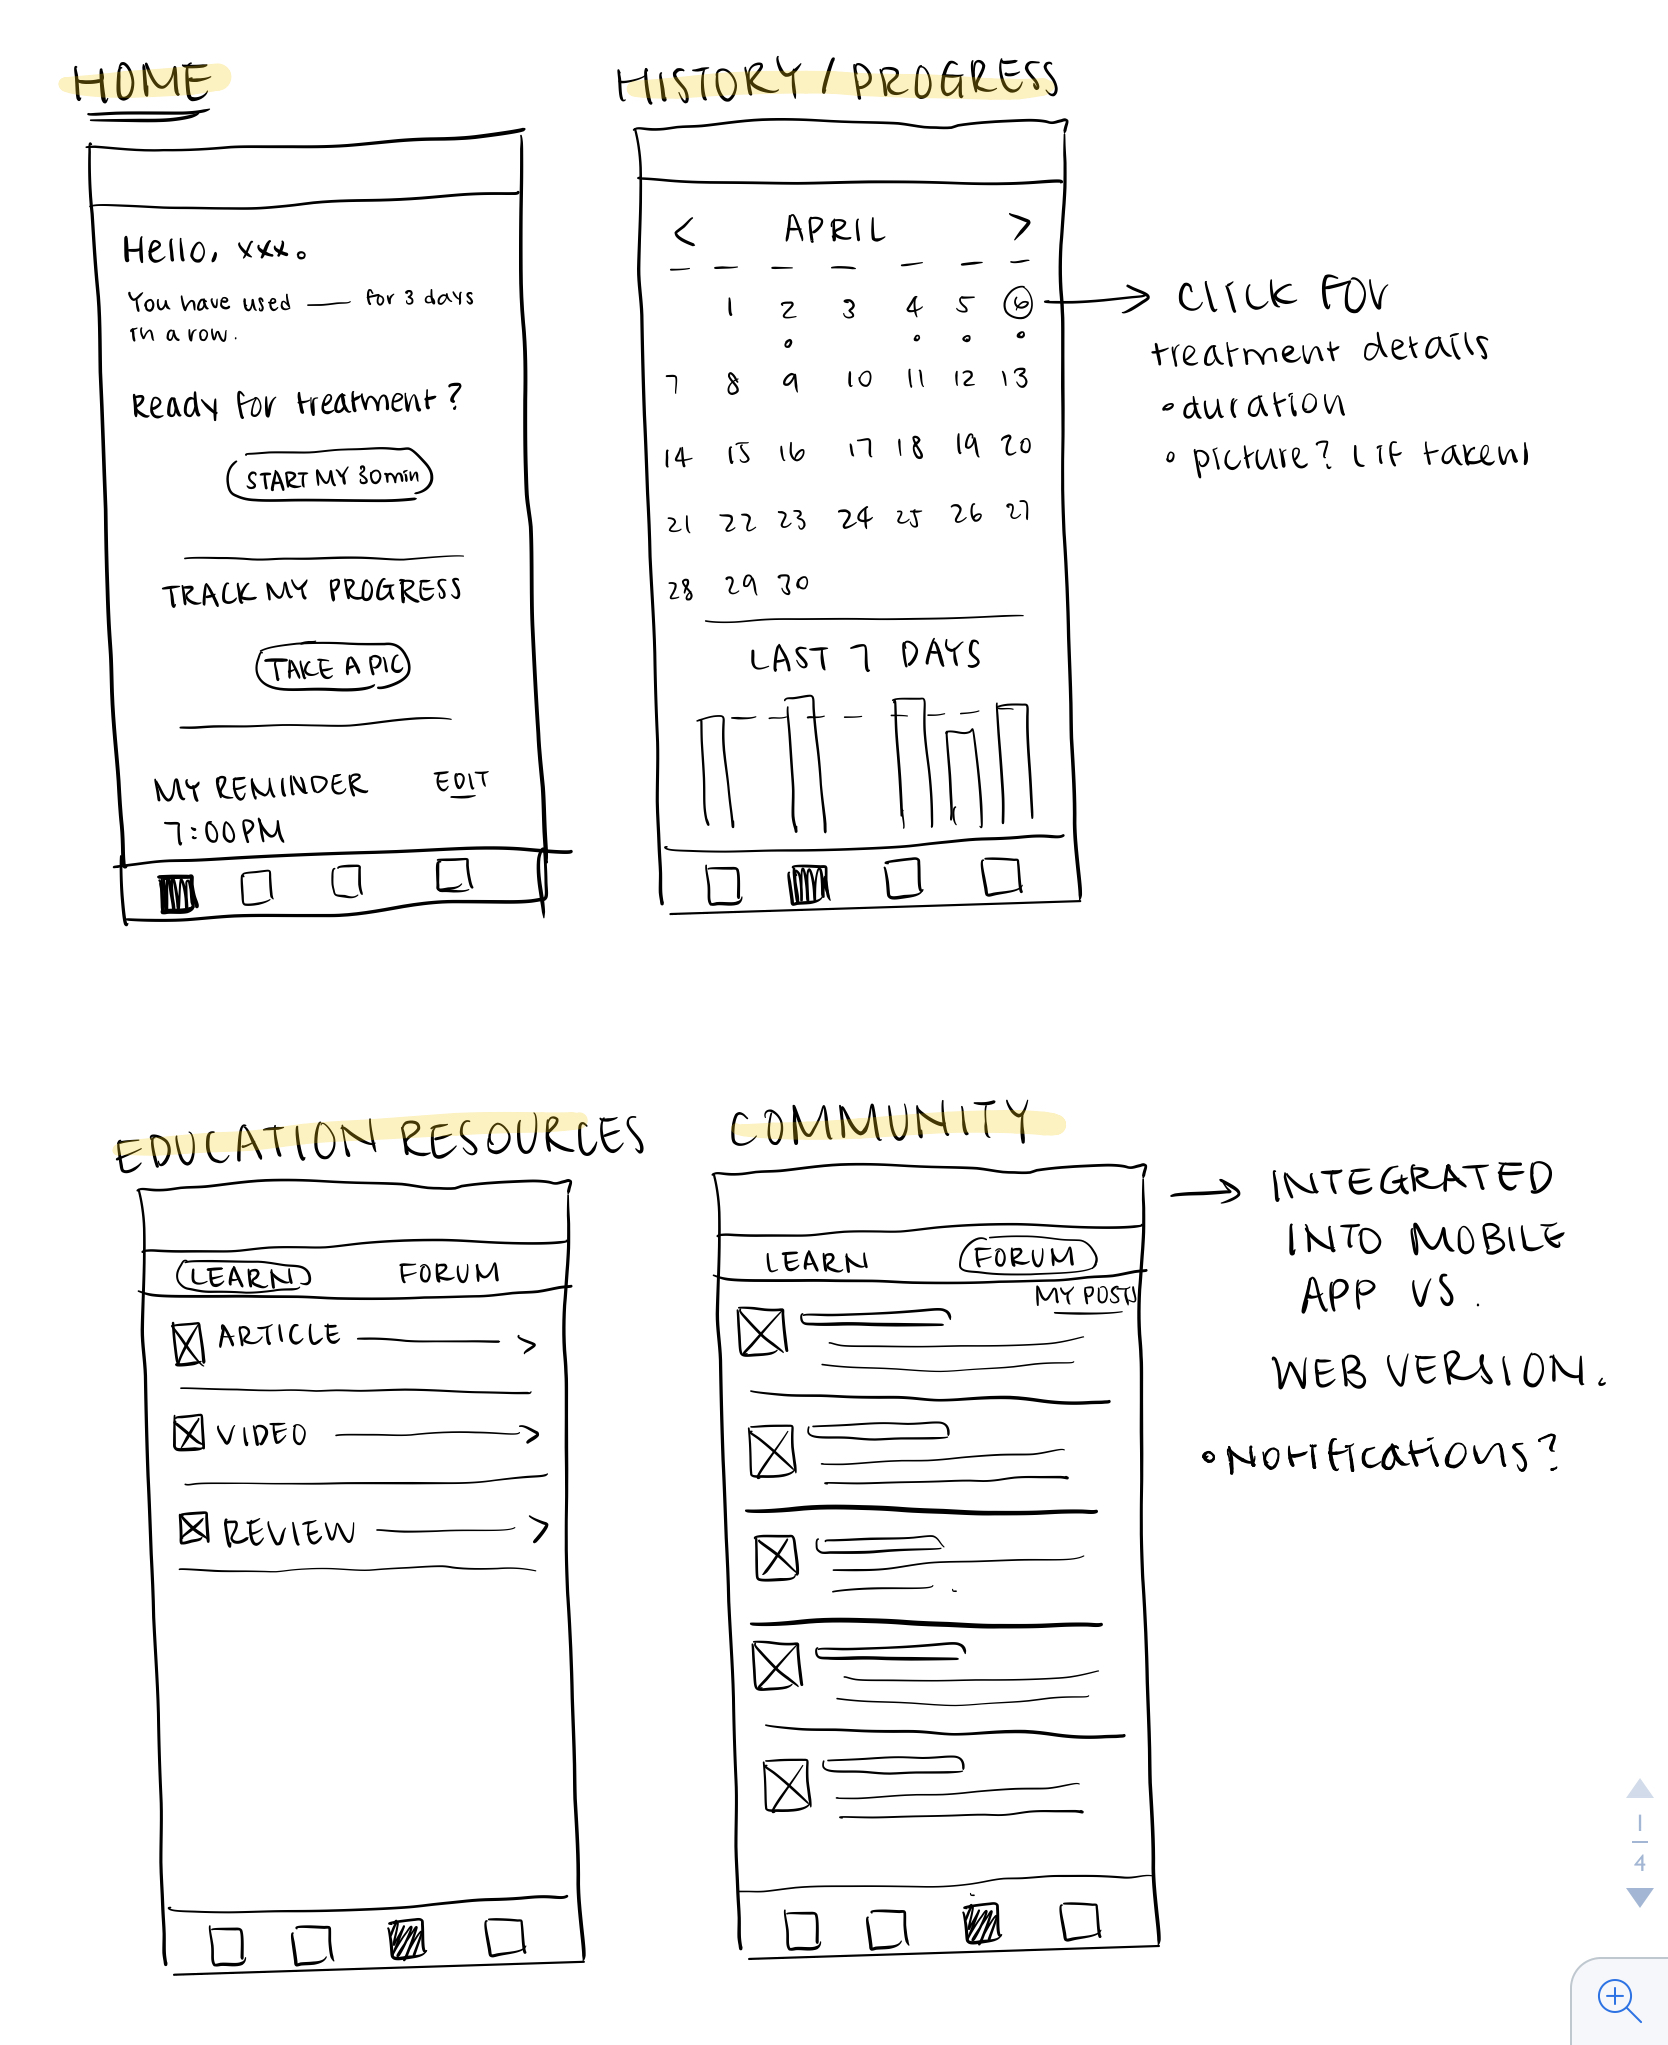 HOME
Hello, xxx.
You have used —— for 3 days
in a row.
Ready for treatment?
START MY 30min
TRACK MY PROGRESS
TAKE A PIC
MY REMINDER EDIT
7:00PM
HISTORY / PROGRESS
< APRIL >
1 2 3 4 5 6
7 8 9 10 11 12 13
14 15 16 17 18 19 20
21 22 23 24 25 26 27
28 29 30
LAST 7 DAYS
CLICK FOR
treatment details
• duration
• picture? (if taken)
EDUCATION RESOURCES
LEARN FORUM
ARTICLE
VIDEO
REVIEW
COMMUNITY
LEARN FORUM
MY POSTS
INTEGRATED
INTO MOBILE
APP VS.
WEB VERSION.
• Notifications?
1
4